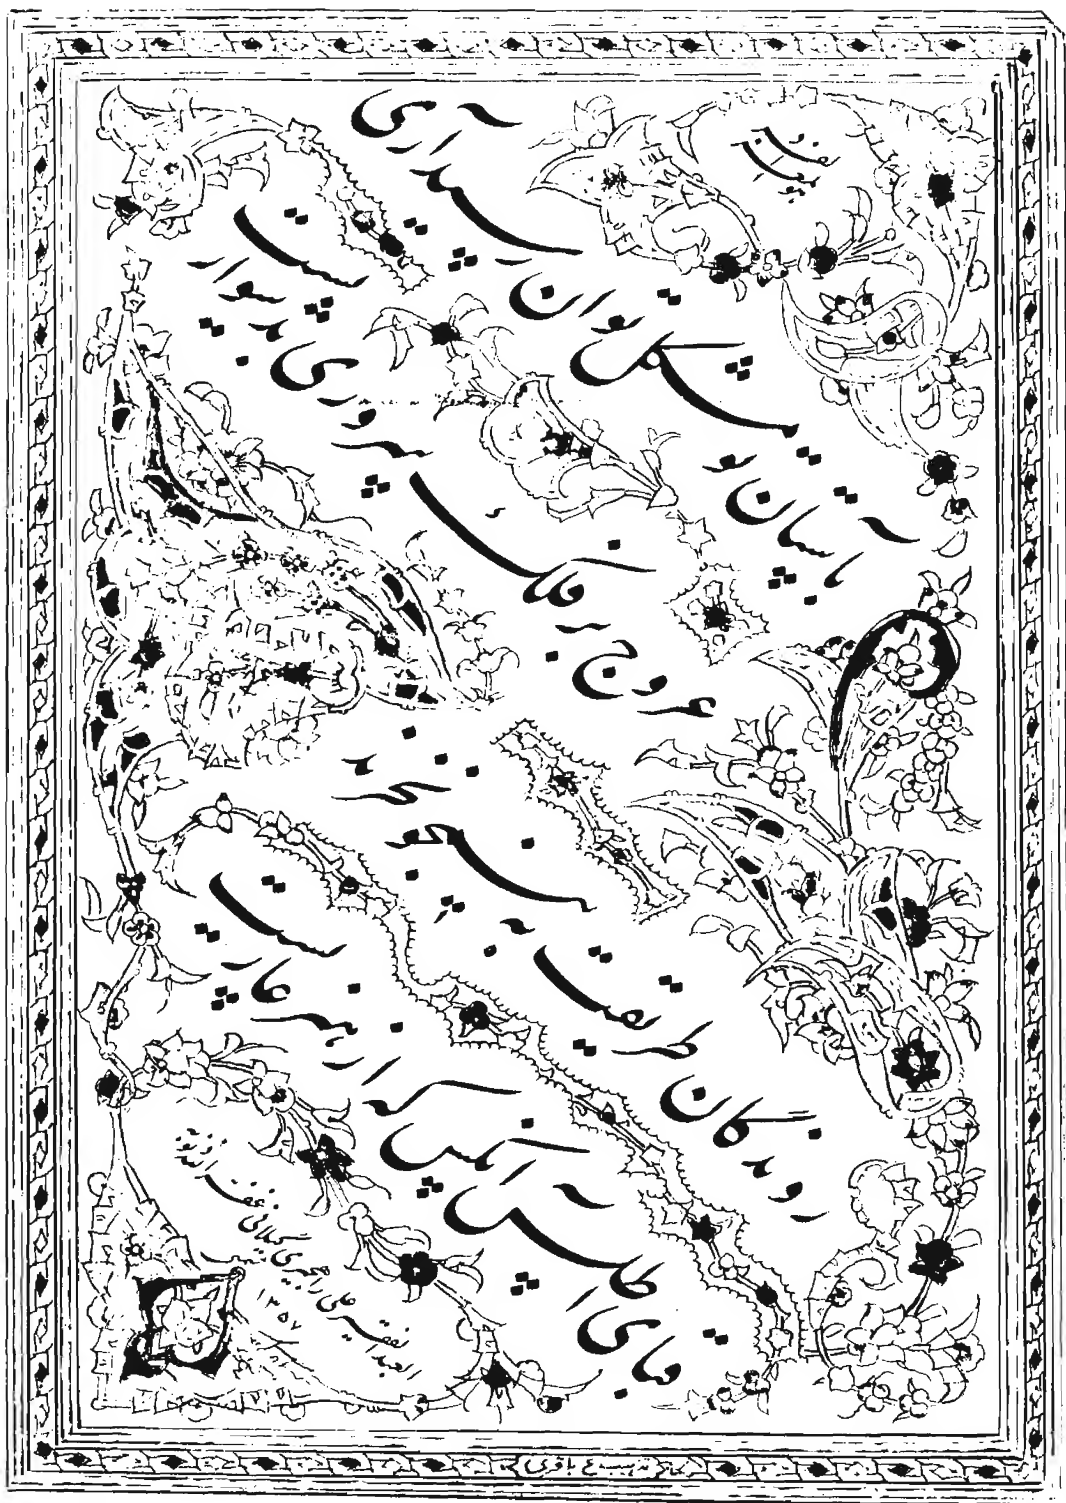 بآستان تو مشکل توان رسید آری
عروج بر فلک سروری بدشواریست
روندگان طریقت به نیم جو نخرند
قبای اطلس آنکس که از هنر عاریست
العبد الفقیر علی راهجیری گیلانی غفر ذنوبه
۱۳۵۷
باقری